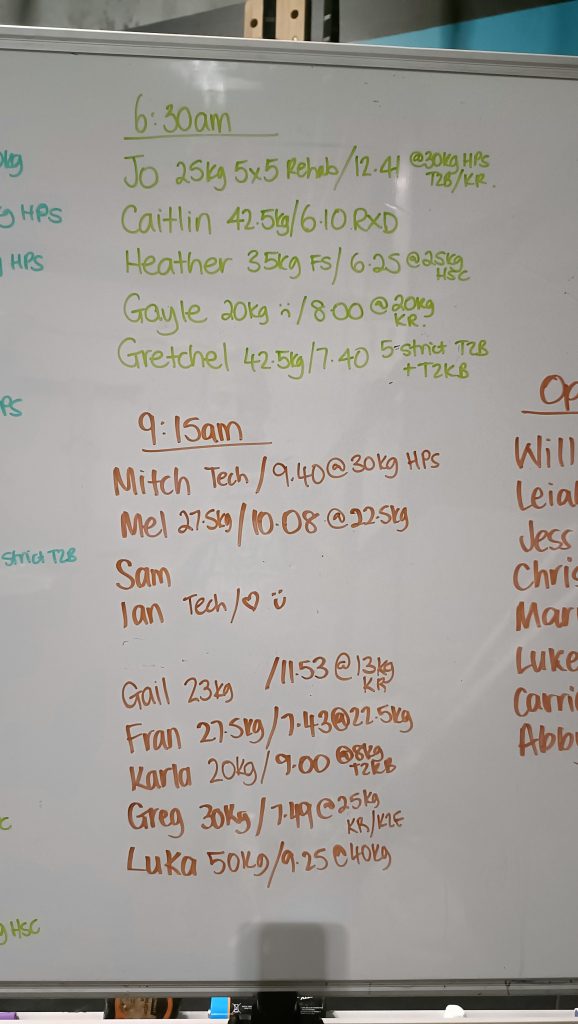 6:30am
Jo 25kg 5x5 Rehab/12.41 @30kg HPS
T2B/KR.
Caitlin 42.5kg/6.10 RXD
Heather 35kg FS/ 6.25 @25kg
HSC
Gayle 20kg :( /8.00 @20kg
KR.
Gretchel 42.5kg/7.40 5-strict T2B
+T2KB
9:15am
Mitch Tech/9.40@30kg HPS
Mel 27.5kg/10.08 @22.5kg
Sam
Ian Tech/♡ :)
Gail 23kg /11.53@13kg
KR
Fran 27.5kg/7.43@22.5kg
Karla 20kg/9.00 @8kg
T2KB
Greg 30kg/7.49@25kg
KR/K2E
Luka 50kg/9.25@40kg
kg
g HPS
HPS
PS
strict T2B
C
g HSC
Op
Will
Leial
Jess
Chris
Mari
Luke
Carri
Abby